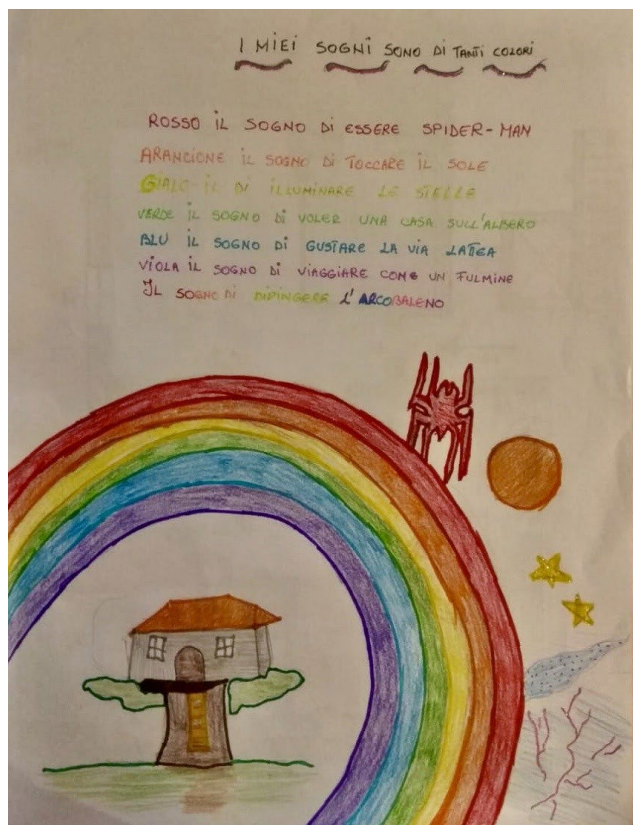 I MIEI SOGNI SONO DI TANTI COLORI
ROSSO IL SOGNO DI ESSERE SPIDER-MAN
ARANCIONE IL SOGNO DI TOCCARE IL SOLE
GIALO IL DI ILLUMINARE LE STELLE
VERDE IL SOGNO DI VOLER UNA CASA SULL'ALBERO
BLU IL SOGNO DI GUSTARE LA VIA LATEA
VIOLA IL SOGNO DI VIAGGIARE COME UN FULMINE
IL SOGNO DI DIPINGERE L'ARCOBALENO